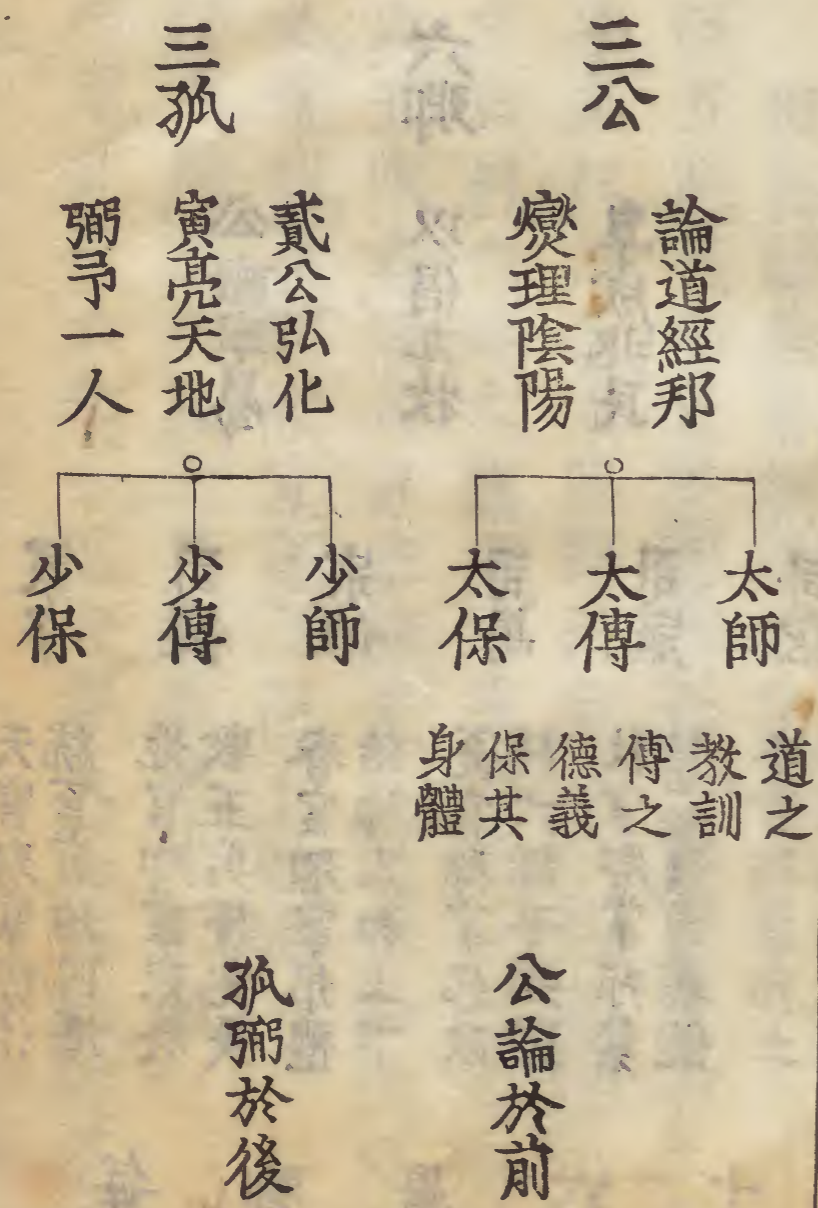 三公
論道經邦
燮理陰陽
太師
太傅
太保
道之
教訓
傅之
德義
保其
身體
公論於前
三孤
貳公弘化
寅亮天地
弼予一人
少師
少傅
少保
孤弼於後